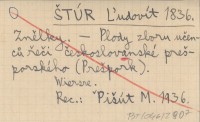 ŠTÚR Ľudovít 1836.
Znělky. - Plody zboru učen-
ců řeči Českoslovanské preš-
porského (Prešpork).
Wiersze.
Rec.: Pišút M. 1936.